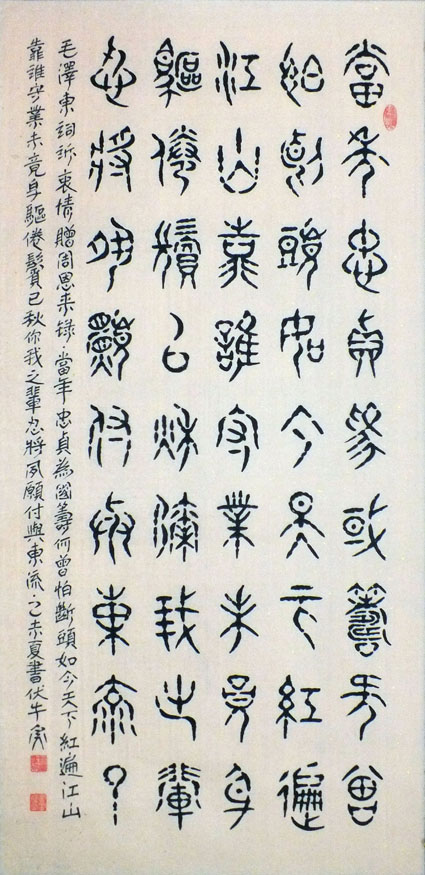 當年忠貞為國籌何曾
怕斷頭如今天下紅遍
江山靠誰守業未竟身
軀倦鬢已秋你我之輩
忍將夙願付與東流？
毛澤東詞訴衷情贈周恩来錄·當年忠貞為國籌何曾怕斷頭如今天下紅遍江山
靠誰守業未竟身驅倦鬢已秋你我之輩忍將夙願付與東流·乙未夏書伏牛